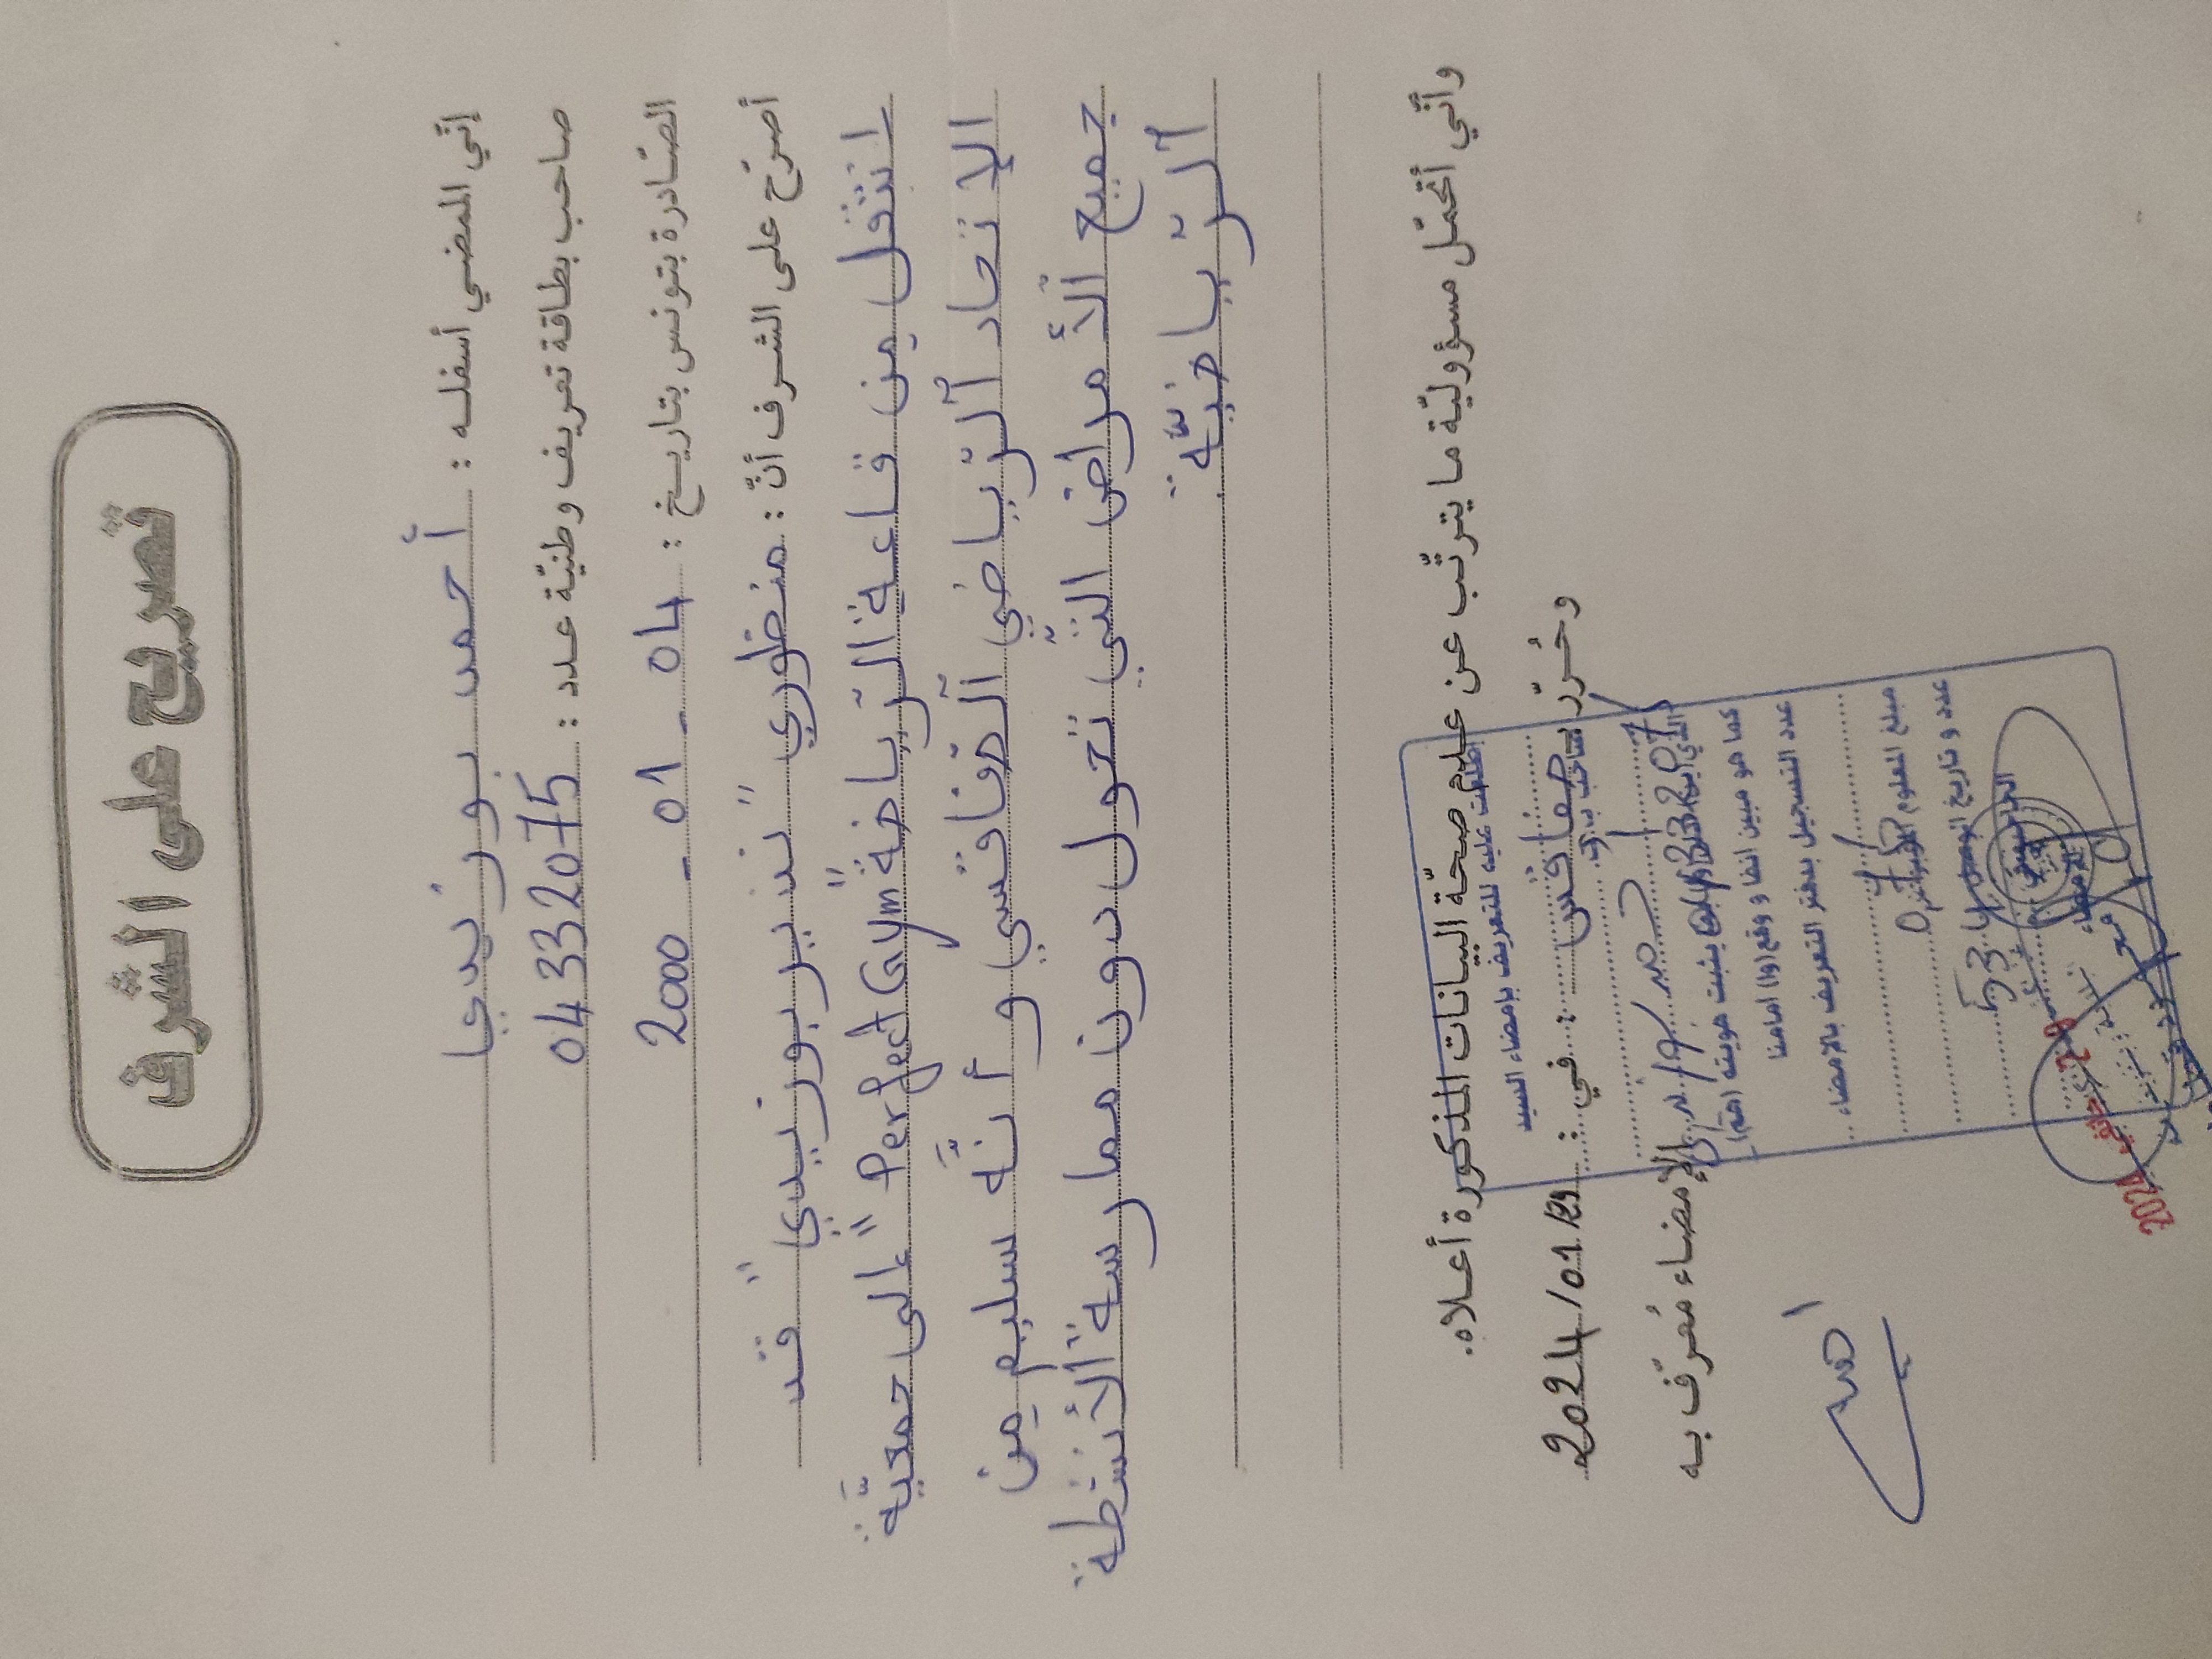 تصريح على الشّرف
إنّي الممضي أسفله : أحمد بوزيدي
صاحب بطاقة تعريف وطنيّة عدد : 04332075
الصّادرة بتونس بتاريخ : 04 - 01 - 2000
أصرّح على الشرف أنّ : منظوري "نذير بوزيدي" قد
انتقل من قاعة الرّياضة "Perfect Gym" إلى جمعيّة
الاتحاد الرّياضي الصفاقسي و أنّه سليم من
جميع الأمراض التّي تحول دون ممارسة الأنشطة
الرّياضيّة.
وأنّي أتحمّل مسؤوليّة ما يترتّب عن عدم صحّة البيانات المذكورة أعلاه.
وحُرّر بـ صفاقس في : 2024/01/29
الإمضاء مُعرّف به
اطلعت عليه للتعريف بإمضاء السيد
صاحب
كما هو مبين أعلاه و وقع (وا) أمامنا
عدد التسجيل بدفتر التعريف بالامضاء
مبلغ المعلوم
عدد و تاريخ الوصل
الامضاء
29 جانفي 2024